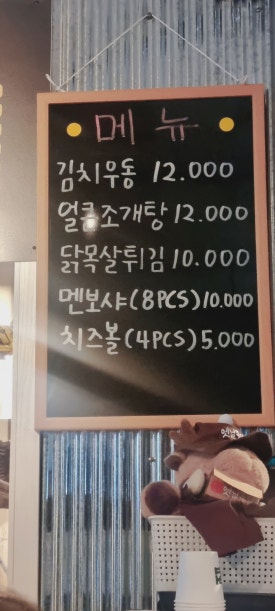 메 뉴
김치우동 12.000
얼큼조개탕 12.000
닭목살튀김 10.000
멘보샤(8PCS) 10.000
치즈볼(4PCS) 5.000